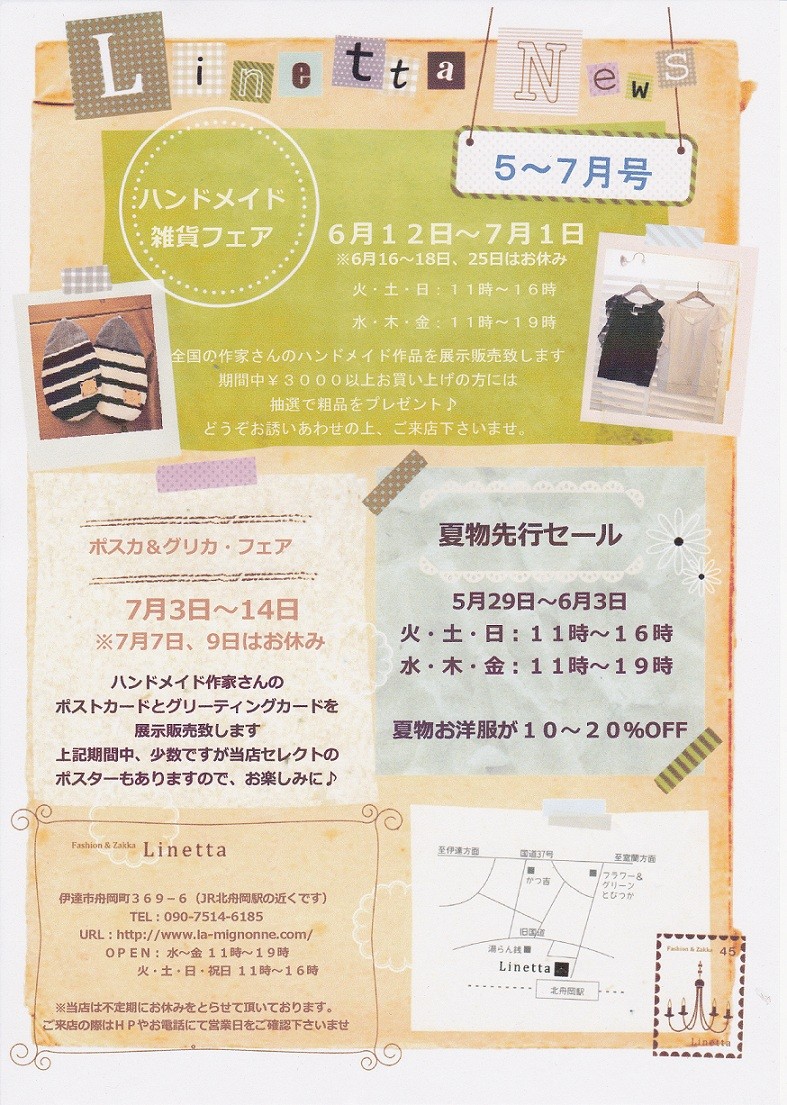 Linetta News
5～7月号
ハンドメイド
雑貨フェア
6月１2日～7月1日
※6月16～18日、25日はお休み
火・土・日：１１時～１６時
水・木・金：１１時～１９時
全国の作家さんのハンドメイド作品を展示販売致します
期間中￥３０００以上お買い上げの方には
抽選で粗品をプレゼント♪
どうぞお誘いあわせの上、ご来店下さいませ。
ポスカ＆グリカ・フェア
7月3日～14日
※7月7日、9日はお休み
ハンドメイド作家さんの
ポストカードとグリーティングカードを
展示販売致します
上記期間中、少数ですが当店セレクトの
ポスターもありますので、お楽しみに♪
夏物先行セール
5月29日～6月3日
火・土・日：１１時～１６時
水・木・金：１１時～１９時
夏物お洋服が１０～２０%OFF
Fashion & Zakka Linetta
伊達市舟岡町３６９－６（JR北舟岡駅の近くです）
TEL：090-7514-6185
URL：http://www.la-mignonne.com/
ＯＰＥＮ： 水～金 １１時～１９時
火・土・日・祝日 １１時～１６時
※当店は不定期にお休みをとらせて頂いております。
ご来店の際はＨＰやお電話にて営業日をご確認下さいませ
至伊達方面
国道37号
至室蘭方面
かつ吉
フラワー＆
グリーン
とびつか
旧国道
湯らん銭
Linetta
北舟岡駅
Fashion & Zakka 45
Linetta